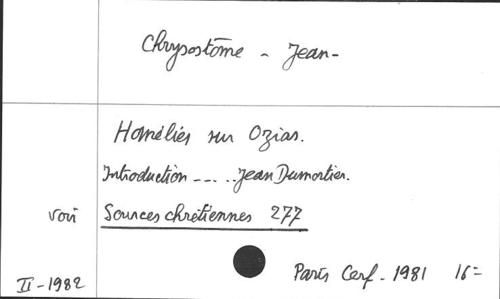 Chrysostôme - Jean-
Homélies sur Ozias.
Introduction ---- .. Jean Dumortier.
voir Sources chrétiennes 277
II-1982 Paris Cerf - 1981 16=